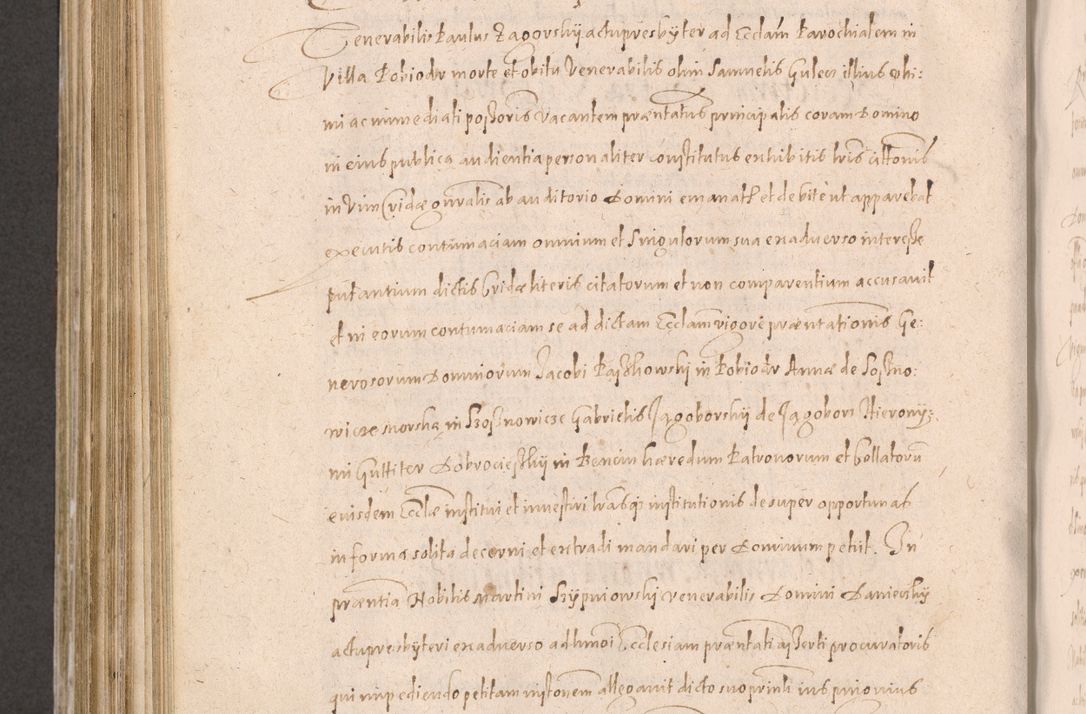 Venerabilis Paulus Zagorskij actu presbyter ad Ecclam Parochialem in
Villa Pobiodr morte et obitu Venerabilis olim Samuelis Gulecz illius ulti:
mi ac immediati possoris vacantem præntatus principalis coram Domino
in eius publica audientia personaliter constitutus exhibitis lris cittonis
in vim Cridæ gnralis ab auditorio Domini emanat et debite ut apparebat
executis contumaciam omnium et singulorum sua ex adverso interesse
putantium dictis Cridæ literis citatorum et non comparentium accusavit
et in eorum contumaciam se ad dictam Ecclam vigore præntationis Ge:
nerosorum Dominorum Jacobi in Pobiodr Annæ de Sosno:
wicze in Szosnowicze Gabrielis Jagoborskij de Jagobors Hierony:
mi Guttiter Dobrociesskij in Bencin hæredum Patronorum et Collatorū
eiusdem Ecclæ institui et investiri lrasq institutionis desuper opportunas
in forma solita decerni et extradi mandari per Dominum petiit. In
præntia Nobilis Martini Szypniowskij venerabilis Domini Danieckij
actu presbyteri ex adverso ad hmoi Ecclesiam præntati asserti procuratoris
qui impediendo petitam instonem allegavit dicto suo prinli ius